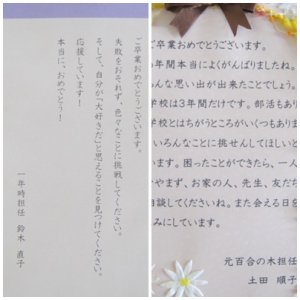 ご卒業おめでとうございます。
失敗をおそれず、色々なことに挑戦してください。
そして、自分が「大好きだ」と思えることを見つけてください。
応援しています！
本当に、おめでとう！
一年時担任 鈴木 直子
ご卒業おめでとうございます。
年間本当によくがんばりましたね。
んな思い出が出来たことでしょう。
学校は3年間だけです。部活もあり
学校とはちがうところがいくつもありま
いろんなことに挑せんしてほしいと
います。困ったことができたら、一人
やまず、お家の人、先生、友だち
相談してくださいね。また会える日を
みにしています。
元百合の木担任
土田 順子